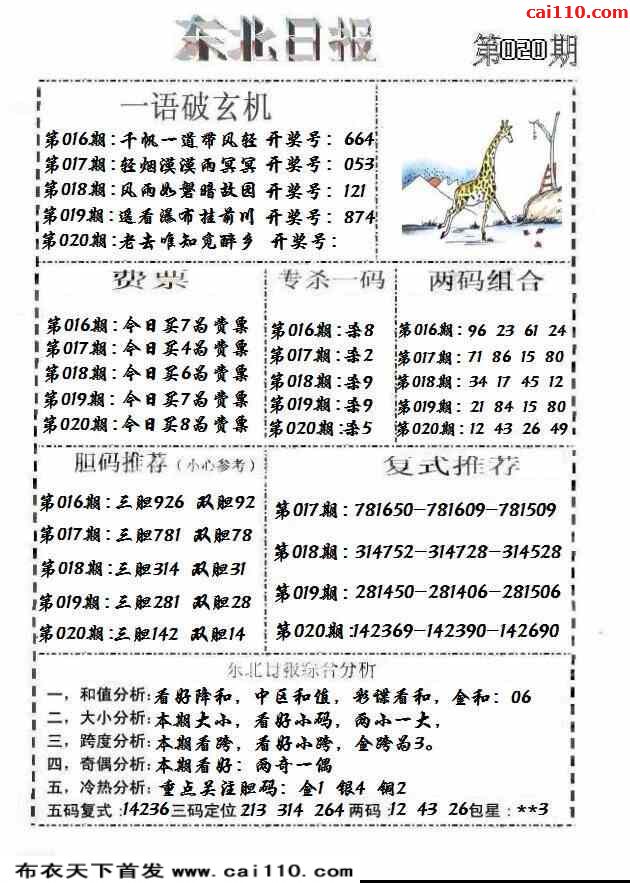 cai110.com
东北日报 第020期
一语破玄机
第016期:千帆一道带风轻 开奖号: 664
第017期:轻烟漠漠雨冥冥 开奖号: 053
第018期:风雨如磐暗故园 开奖号: 121
第019期:遥看瀑布挂前川 开奖号: 874
第020期:老去唯知觅醉乡 开奖号:
费票
第016期:今日买7为费票
第017期:今日买4为费票
第018期:今日买6为费票
第019期:今日买7为费票
第020期:今日买8为费票
专杀一码
第016期:杀8
第017期:杀2
第018期:杀9
第019期:杀9
第020期:杀5
两码组合
第016期: 96 23 61 24
第017期: 71 86 15 80
第018期: 34 17 45 12
第019期: 21 84 15 80
第020期: 12 43 26 49
胆码推荐(小心参考)
第016期:三胆926 双胆92
第017期:三胆781 双胆78
第018期:三胆314 双胆31
第019期:三胆281 双胆28
第020期:三胆142 双胆14
复式推荐
第017期: 781650—781609—781509
第018期: 314752—314728—314528
第019期: 281450—281406—281506
第020期: 142369—142390—142690
东北日报综合分析
一，和值分析:看好降和，中区和值，彩蝶看和，金和：06
二、大小分析:本期大小，看好小码，两小一大，
三，跨度分析:本期看跨，看好小跨，金跨为3。
四、奇偶分析:本期看好：两奇一偶
五，冷热分析:重点关注胆码：金1 银4 铜2
五码复式:14236三码定位213 314 264两码:12 43 26包星:**3
布衣天下首发 www.cai110.com